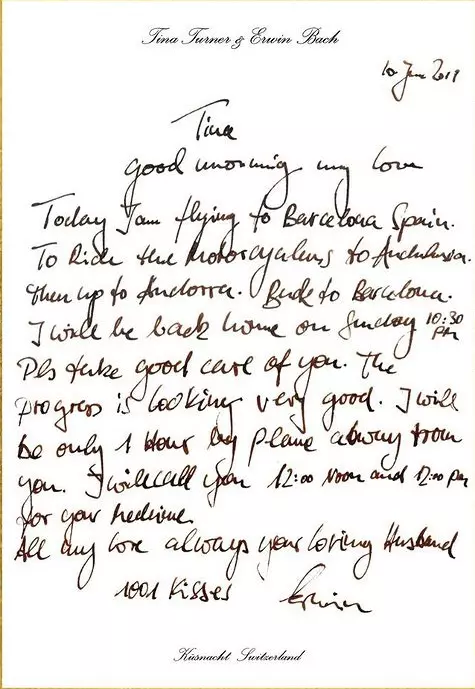 Tina Turner & Erwin Bach
10 June 2019
Tina
good morning my love
Today I am flying to Barcelona Spain.
To Ride the Motorcycles to Andalusia.
then up to Andorra. Back to Barcelona.
I will be back home on Sunday 10:30 PM
Pls take good care of you. The
progress is looking very good. I will
be only 1 Hour by plane away from
you. I will call you 12:00 Noon and 12:00 pm
for your Medicine.
All my love always your loving Husband
1001 Kisses Erwin
Küsnacht Switzerland